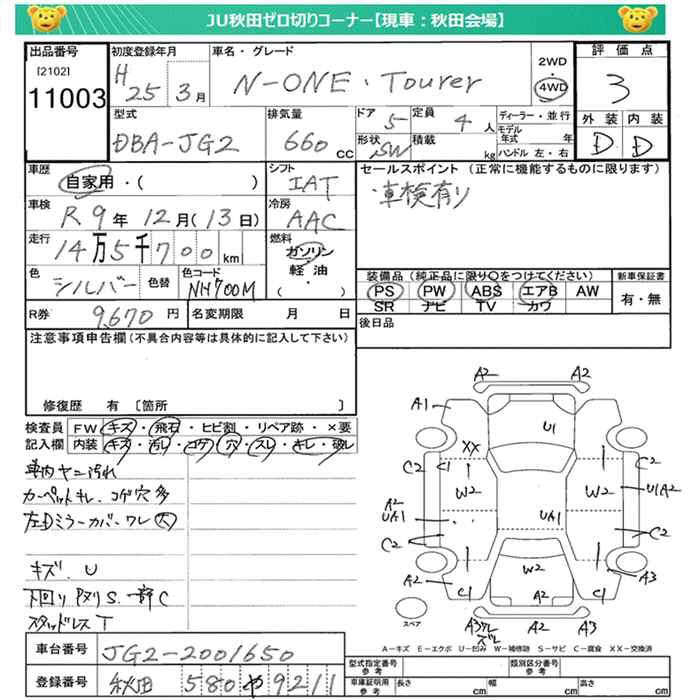 JU秋田ゼロ切りコーナー【現車：秋田会場】
出品番号
[2102]
11003
初度登録年月
H 25 年 3 月
車名・グレード
N-ONE・Tourer
2WD
4WD
評価点
3
外装 内装
D D
型式
DBA-JG2
排気量
660 cc
ドア
5
定員
4 人
形状
SW
積載
kg
ディーラー・並行
モデル年式 年
ハンドル 左・右
車歴
自家用・( )
シフト
IAT
車検
R 9 年 12 月 (13 日)
冷房
AAC
走行
14万5千700 km
燃料
ガソリン
軽油
( )
色
シルバー
色替
色コード
NH700M
R券
9,670 円
名変期限 月 日
セールスポイント (正常に機能するものに限ります)
・車検有り
装備品(純正品に限り○をつけてください)
PS PW ABS エアB AW
SR ナビ TV カワ
新車保証書
有・無
後日品
注意事項申告欄(不具合内容等は具体的に記入して下さい)
修復歴 有 〔箇所 〕
検査員記入欄
FW キズ・飛石・ヒビ割・リペア跡・×要
内装 キズ・汚レ・コゲ・穴・スレ・キレ・破レ
車内ヤニ汚れ
カーペットキレ、コゲ穴多
左Dミラーカバーワレ(大)
キズ、U
下回りサビS.一部C
スタッドレスT
A2 A2
A1
U1
XX
C2 C1 C1 C2
W2 W2
U1A2
A2
UA1
UA1
C2 C2
W2
A2 C1 A2 C1 A3
A3 ズレ A2 A3
スペア
A－キズ E－エクボ U－凹み W－補修跡 S－サビ C－腐食 XX－交換済
車台番号
JG2-2001650
登録番号
秋田 580 や 9211
型式指定番号
参考
類別区分番号
参考
車庫証明用
参考
長さ cm 幅 cm 高さ cm